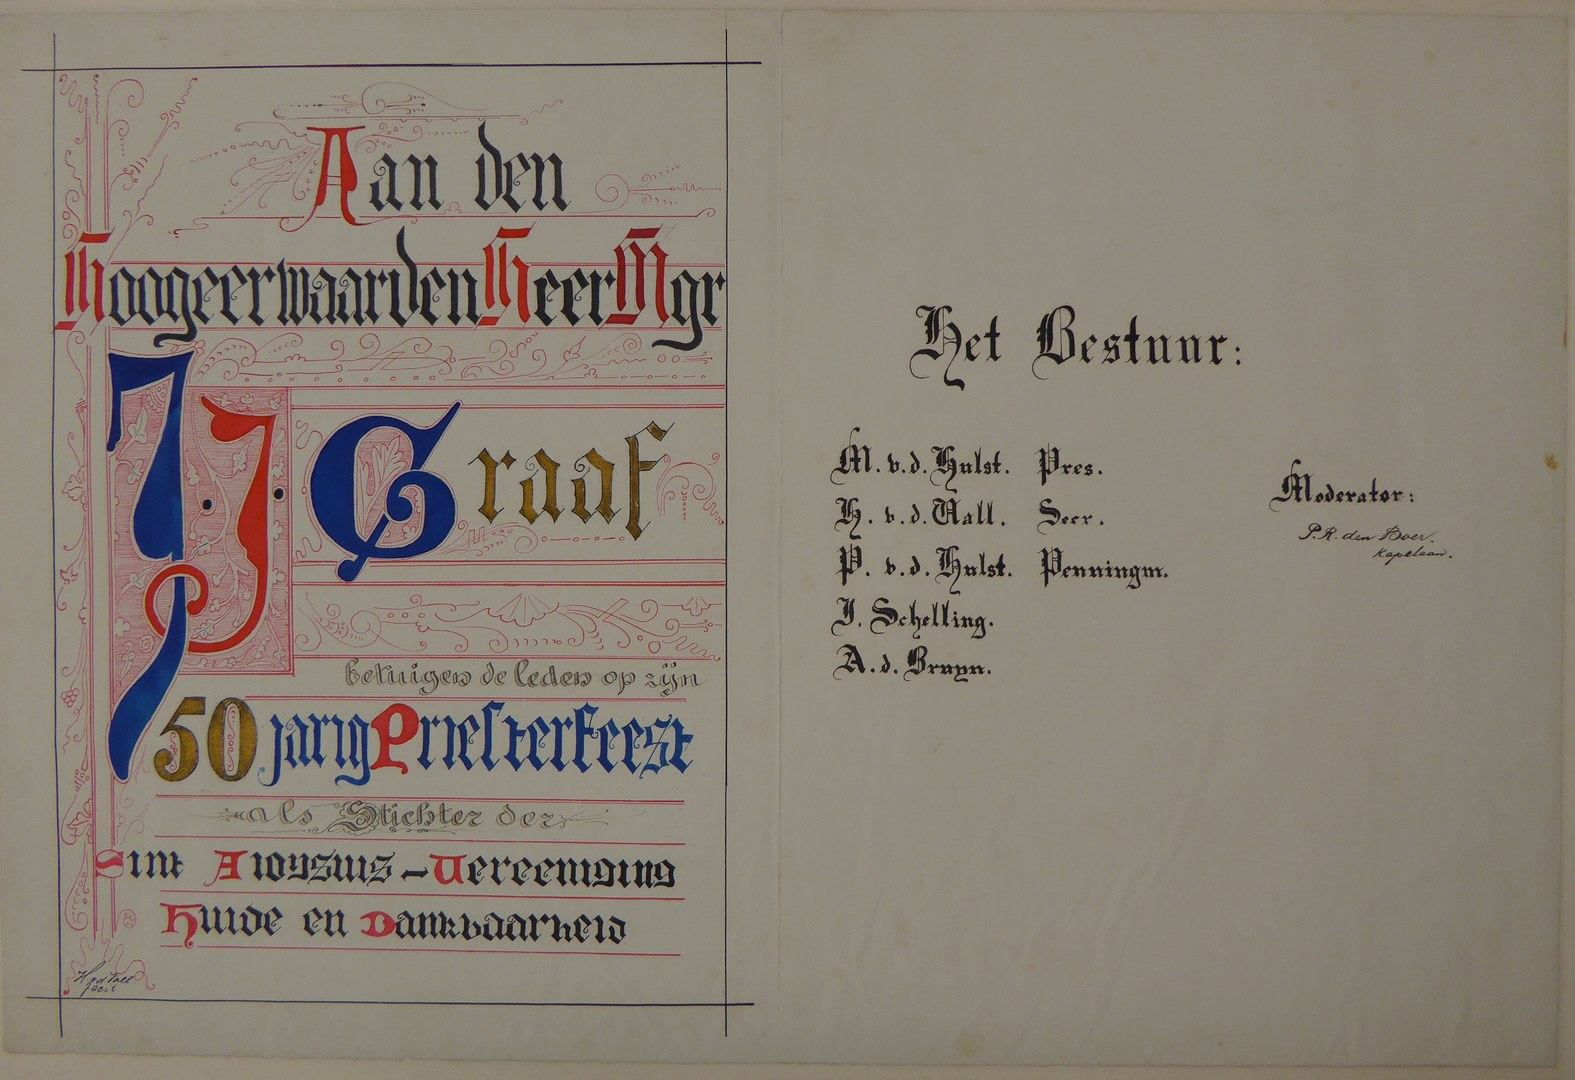 Aan den
Hoogeerwaarden Heer Mgr
J. J. Graaf
betuigen de leden op zijn
50 jarig Priesterfeest
als Stichter der
Sint Aloysius-Vereeniging
Hulde en Dankbaarheid
Het Bestuur:
M. v.d. Hulst. Pres.
H. v.d. Vall. Secr.
P. v.d. Hulst. Penningm.
J. Schelling.
A. d. Bruyn.
Moderator:
P. R. den Boer.
Kapelaan.